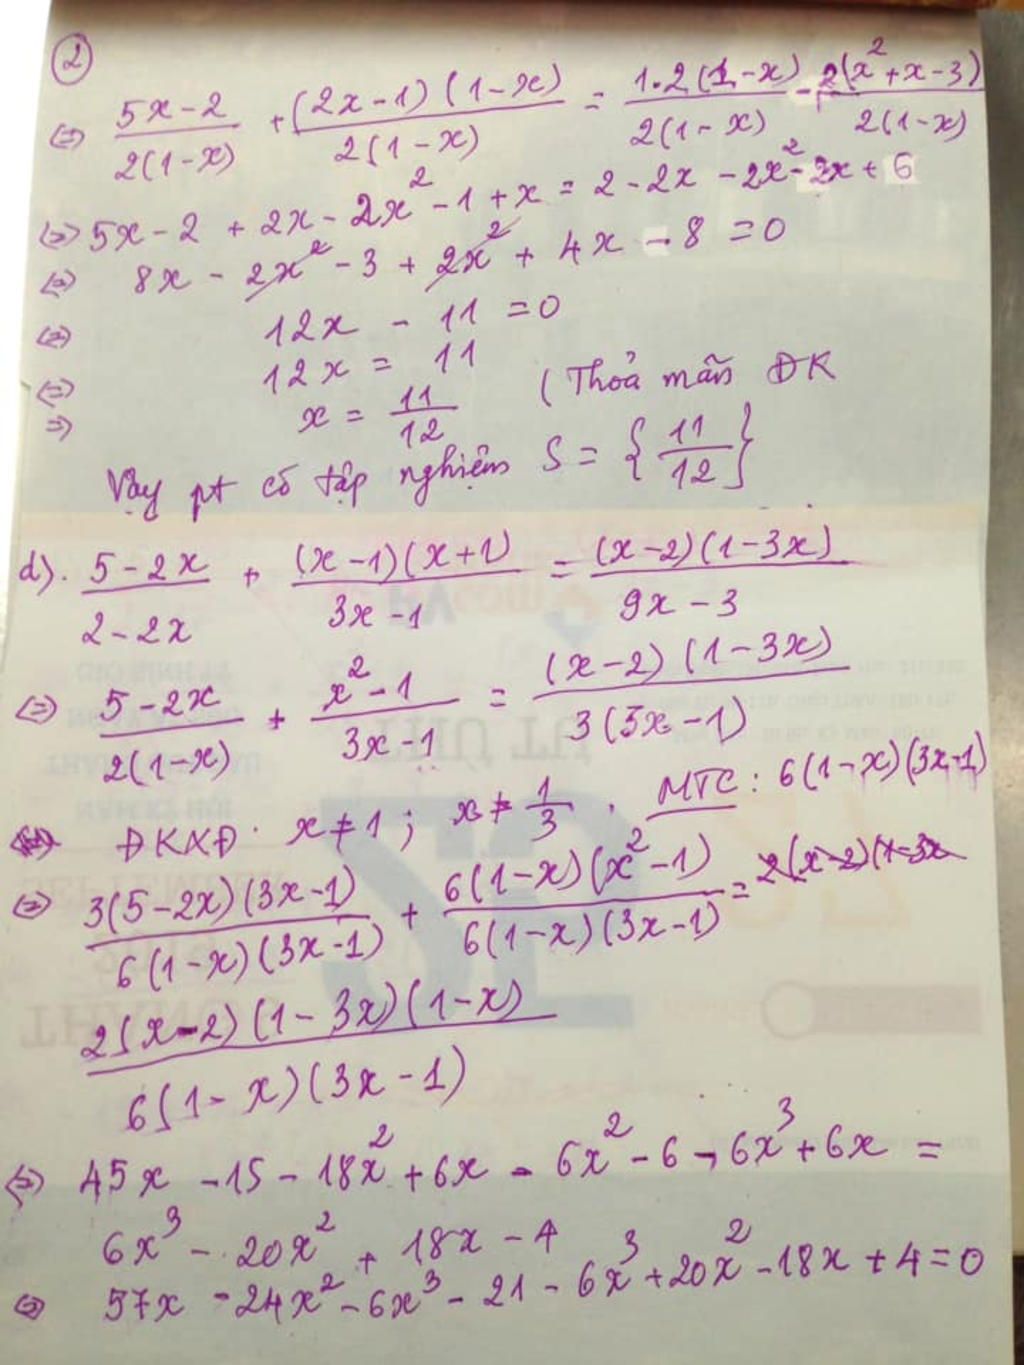 2
<=> (5x-2)/(2(1-x)) + ((2x-1)(1-x))/(2(1-x)) = (1.2(1-x))/(2(1-x)) - (2(x²+x-3))/(2(1-x))
<=> 5x-2 + 2x - 2x² - 1 + x = 2 - 2x - 2x² - 2x + 6
<=> 8x - 2x² - 3 + 2x² + 4x - 8 = 0
<=> 12x - 11 = 0
<=> 12x = 11
=> x = 11/12 (Thỏa mãn ĐK
Vậy pt có tập nghiệm S = {11/12}
d). (5-2x)/(2-2x) + ((x-1)(x+1))/(3x-1) = ((x-2)(1-3x))/(9x-3)
<=> (5-2x)/(2(1-x)) + (x²-1)/(3x-1) = ((x-2)(1-3x))/(3(3x-1))
ĐKXĐ. x≠1; x≠1/3. MTC: 6(1-x)(3x-1)
<=> (3(5-2x)(3x-1))/(6(1-x)(3x-1)) + (6(1-x)(x²-1))/(6(1-x)(3x-1)) = 2(x-2)(1-3x
(2(x-2)(1-3x)(1-x))/(6(1-x)(3x-1))
<=> 45x - 15 - 18x² + 6x - 6x² - 6 - 6x³ + 6x =
6x³ - 20x² + 18x - 4
<=> 57x - 24x² - 6x³ - 21 - 6x³ + 20x² - 18x + 4 = 0